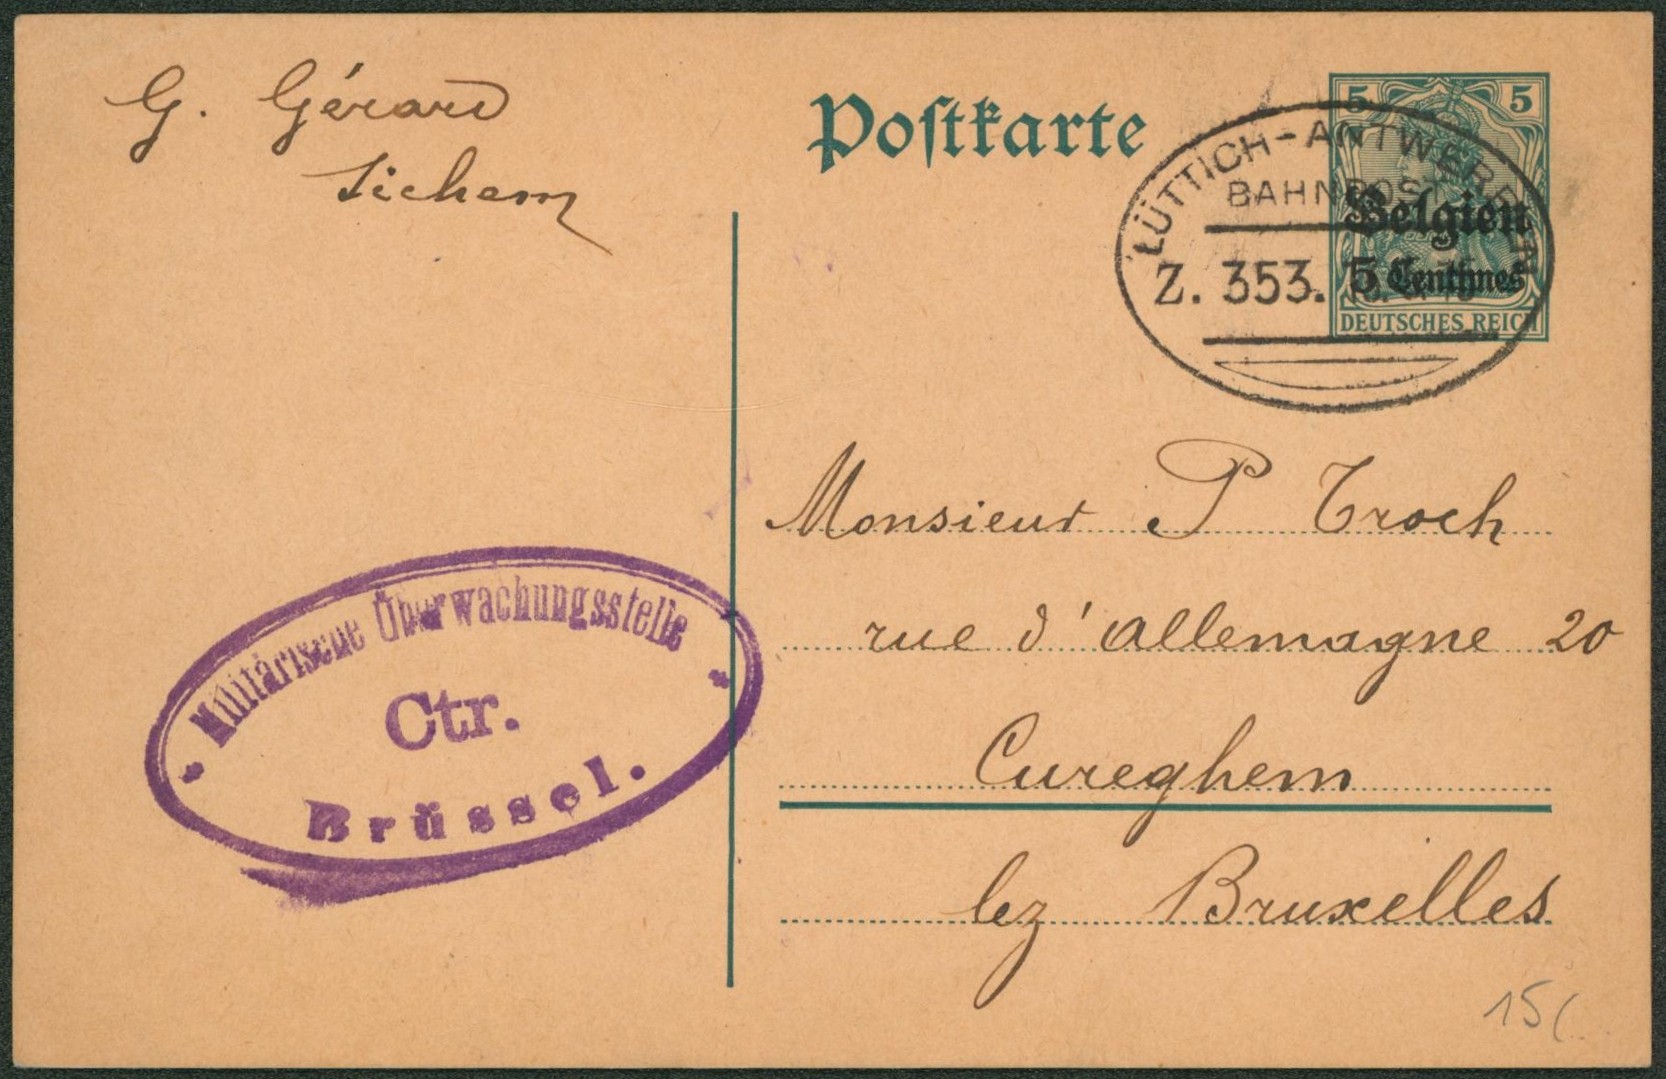 G. Gérard
Sichem
Postkarte
5 5
Belgien
5 Centimes
DEUTSCHES REICH
LÜTTICH-ANTWERPEN
BAHNPOST
Z. 353.
Monsieur P Troch
rue d'allemagne 20
Cureghem
lez Bruxelles
Militärische Überwachungsstelle
Ctr.
Brüssel.
15